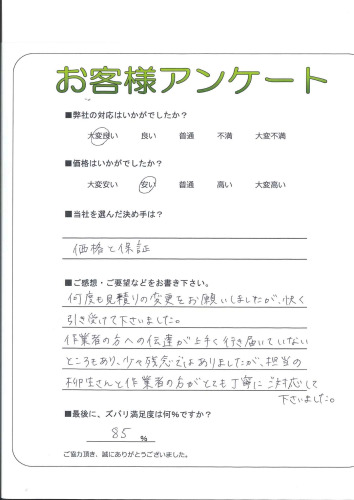 お客様アンケート
■弊社の対応はいかがでしたか?
大変良い 良い 普通 不満 大変不満
■価格はいかがでしたか?
大変安い 安い 普通 高い 大変高い
■当社を選んだ決め手は?
価格と保証
■ご感想・ご要望などをお書き下さい。
何度も見積りの変更をお願いしましたが、快く
引き受けて下さいました。
作業者の方への伝達が上手く行き届いていない
ところもあり、少々残念ではありましたが、担当の
柳生さんと作業者の方がとても丁寧にご対応して
下さいました。
■最後に、ズバリ満足度は何%ですか?
85 %
ご協力頂き、誠にありがとうございました。